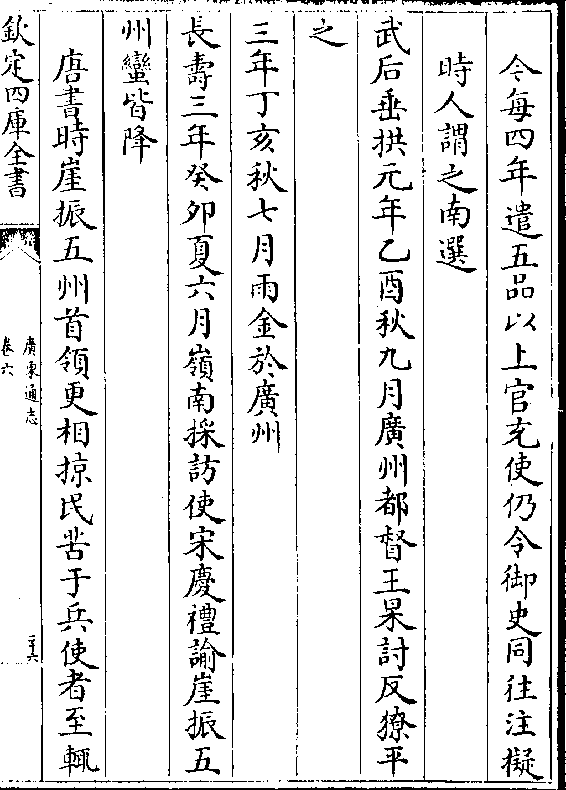 令每四年遣五品以上官充使仍令御史同往注擬
時人謂之南選
武后垂拱元年乙酉秋九月廣州都督王杲討反獠平
之
三年丁亥秋七月雨金於廣州
長壽三年癸卯夏六月嶺南採訪使宋慶禮諭崖振五
州蠻皆降
唐書時崖振五州首領更相掠民苦于兵使者至輒
欽定四庫全書
廣東通志
卷六
二十六